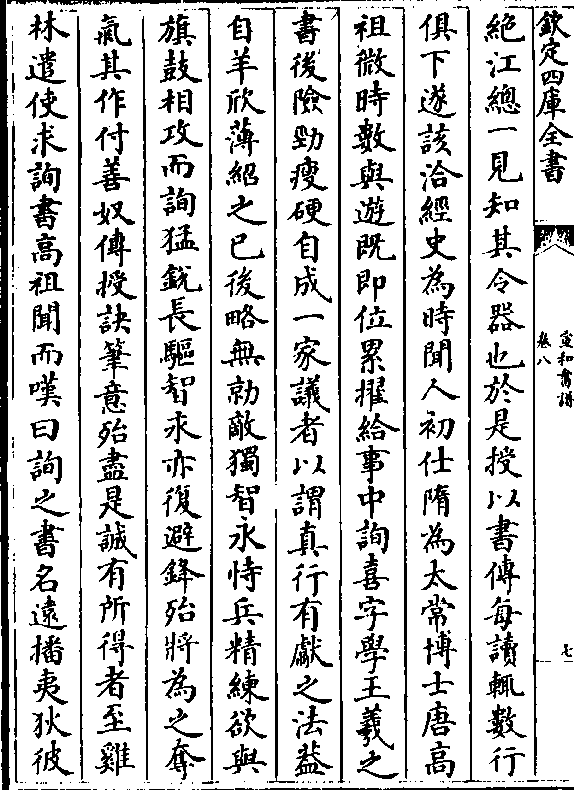 欽定四庫全書
宣和書譜
卷八
七
絶江總一見知其令器也於是授以書傳每讀輒數行
俱下遂該洽經史為時聞人初仕隋為太常博士唐高
祖微時數與遊既即位累擢給事中詢喜字學王羲之
書後險勁瘦硬自成一家議者以謂真行有獻之法葢
自羊欣薄紹之已後略無勍敵獨智永恃兵精練欲與
旗鼓相攻而詢猛鋭長驅智永亦復避鋒殆將為之奪
氣其作付善奴傳授訣筆意殆盡是誠有所得者至雞
林遣使求詢書高祖聞而嘆曰詢之書名遠播夷狄彼